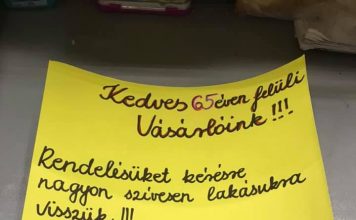 Kedves 65 éven felüli
Vásárlóink !!!
Rendelésüket kérésre
nagyon szívesen lakásukra
visszük !!!